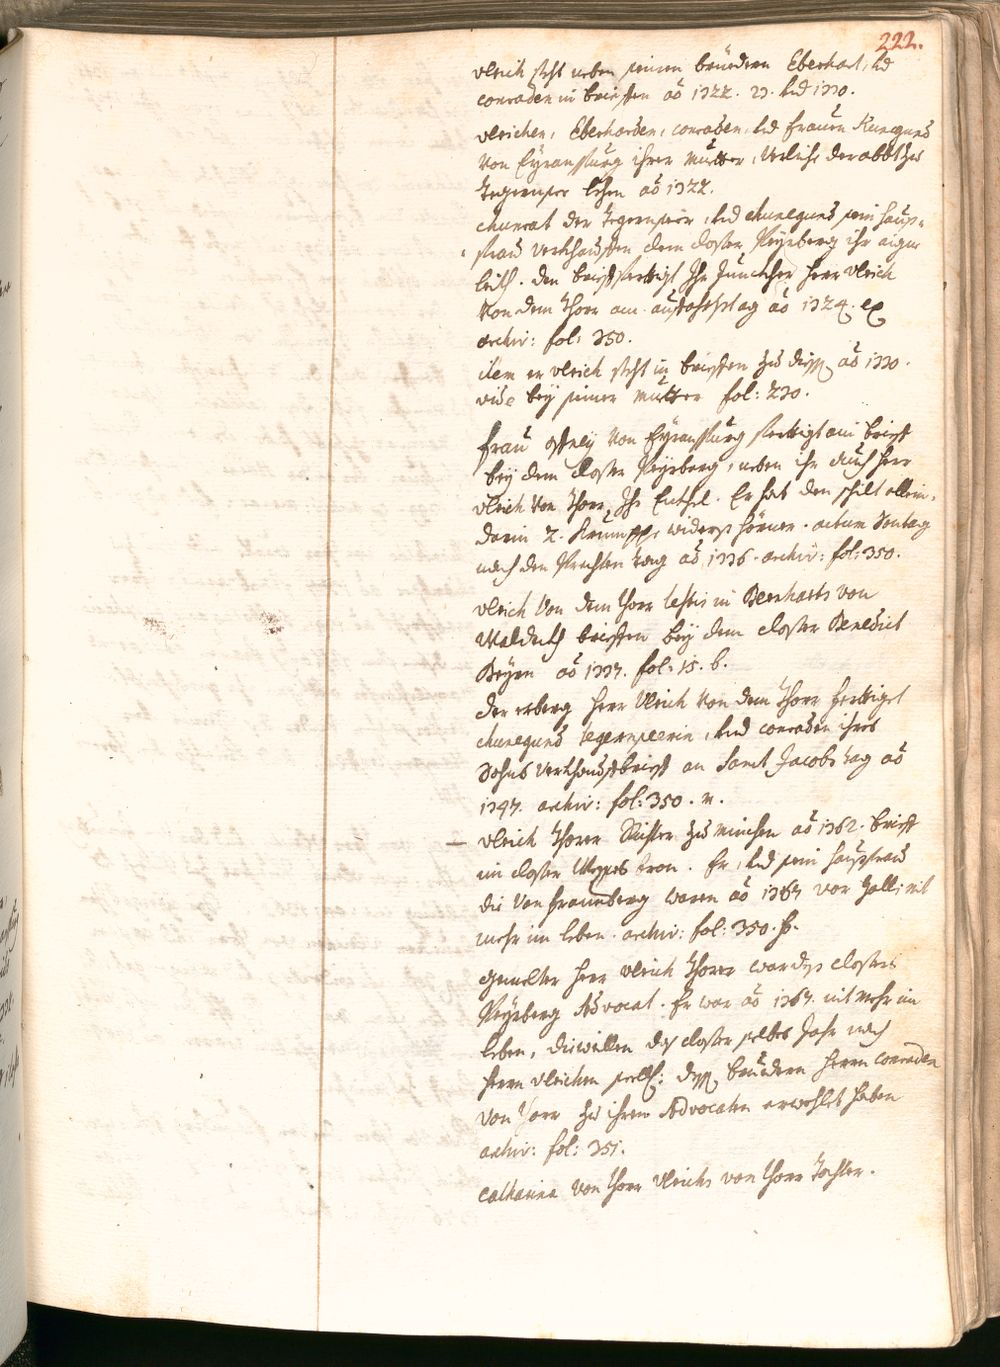 222.
vlrich steht neben seinen bruedern Eberhart, vnd
conraden in brieffen aō 1322. 23. vnd 1330.
vlrichen, Eberharden, conraden, vnd frauen Kunegund
von Eyranspurg ihrer mutter, verliche der abbt zu
Tegernsee lehen aō 1322.
chunrat der Tegernseer, vnd chunegund sein haus-
frau verkhaufften dem closter Peyrberg ihr aigne
leith. den brieff ferttigt Ihr Junckher herr vlrich
von dem Thorn am auffahrtstag aō 1324. ex
archiv: fol: 350.
item er vlrich steht in brieffen zu diessen aō 1330.
vide bey seiner mutter fol: 230.
frau von Eyranspurg ferttigt ain brieff
bey dem closter Peyrberg, neben ihr auch herr
vlrich von Thorn, Ihr Enickel. Er hat den schilt allein,
darin 2. krumppe widers hörner. actum Sontag
nach den Prechten tag aō 1336. archiv: fol: 350.
vlrich von dem Thorr testis in Bernharts von
Waldeckh brieffen bey dem closter Benedict
Beyrn aō 1337. fol: 15. b.
der erberg herr Vlrich von dem Thorr ferttiget
chunegund tegernseerin, vnd conraden ihres
Sohns verkhauffbrieff an Sanct Jacobs tag aō
1347. archiv: fol: 350. n.
vlrich Thorer Richter zu München aō 1362. brieff
im closter Weyers. Er, vnd sein hausfrau
die von fraunberg waren aō 1367 vor nit
mehr im leben. archiv: fol: 350.
gemelter herr vlrich Thorer war dess closters
Peyrberg Advocat. Er war aō 1367. nit mehr im
leben, dieweillen das closter selbes Jahr nach
herrn vlrichen seel: dessen bruedern herrn conraden
von Thorr zu ihrem Advocaten erwehlet haben
archiv: fol: 351.
catharina von Thorr vlrichs von Thorr Tochter.